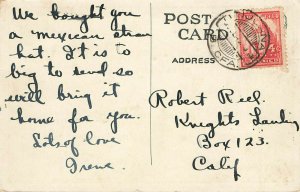 We bought you
a mexican straw
hat. It is to
big to send so
will bring it
home for you.
Lots of love
Irene.
POST
CARD
ADDRESS
Robert Reel.
Knights Landing
Box 123.
Calif